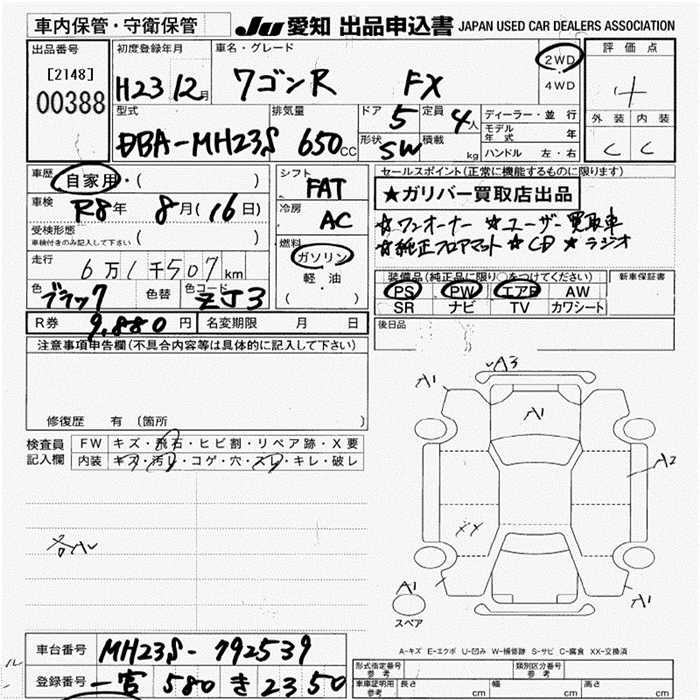 車内保管・守衛保管 JU 愛知 出品申込書 JAPAN USED CAR DEALERS ASSOCIATION
出品番号 初度登録年月 車名・グレード 評価点
[2148] H23 12月 ワゴンR FX 2WD 4
00388 4WD
型式 排気量 ドア 5 定員 4人 ディーラー・並行 外装 内装
モデル年式 年
DBA-MH23S 650cc 形状 SW 積載 kg ハンドル 左・右 C C
車歴 自家用・( ) シフト FAT セールスポイント(正常に機能するものに限ります)
★ガリバー買取店出品
車検 R8年 8月(16日) 冷房 AC
☆ワンオーナー ☆ユーザー買取車
受検形態 ( )
車検付きのみ記入して下さい
☆純正フロアマット ☆CD ★ラジオ
燃料 ガソリン 軽油 ( )
走行 6万1千507km
装備品(純正品に限り○をつけてください) 新車保証書
色 ブラック 色替 色コード ZJ3
PS PW エアB AW
SR ナビ TV カワシート
R券 9,880円 名変期限 月 日
後日品
注意事項申告欄(不具合内容等は具体的に記入して下さい)
修復歴 有 〔箇所
A1 A3
A1
検査員記入欄 FW キズ・飛石・ヒビ割・リペア跡・X要
内装 キズ・汚レ・コゲ・穴・スレ・キレ・破レ
A2
XX
A1 A1
スペア
A-キズ E-エクボ U-凹み W-補修跡 S-サビ C-腐食 XX-交換済
車台番号 MH23S-792539
登録番号 一宮 580 き 2350
形式指定番号 参考 類別区分番号 参考
車庫証明用 参考 長さ cm 幅 cm 高さ cm